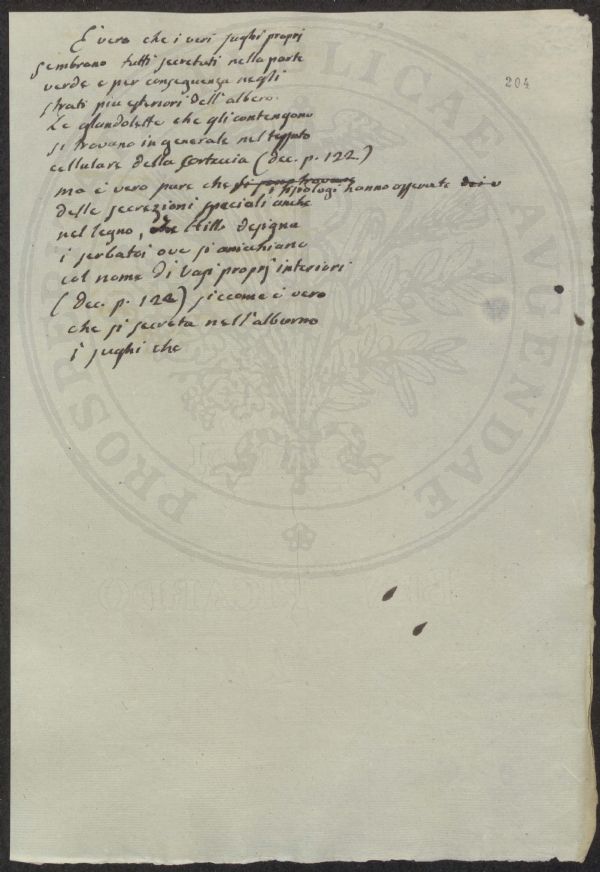 204
È vero che i veri sughi proprj
sembrano tutti secretati nella parte
verde e per conseguenza negli
strati più esteriori dell'albero.
Le glandolette che gli contengono
si trovano in generale nel tessuto
cellulare della corteccia (dec. p. 122)
ma è vero pure che si sono trovate i fisiologi hanno osservate
delle secrezioni speciali anche
nel legno, che Hill designa
i serbatoi ove si annichiano
col nome di Vasi proprj interiori
(dec. p. 122) siccome è vero
che si secreta nell'alburno
i sughi che